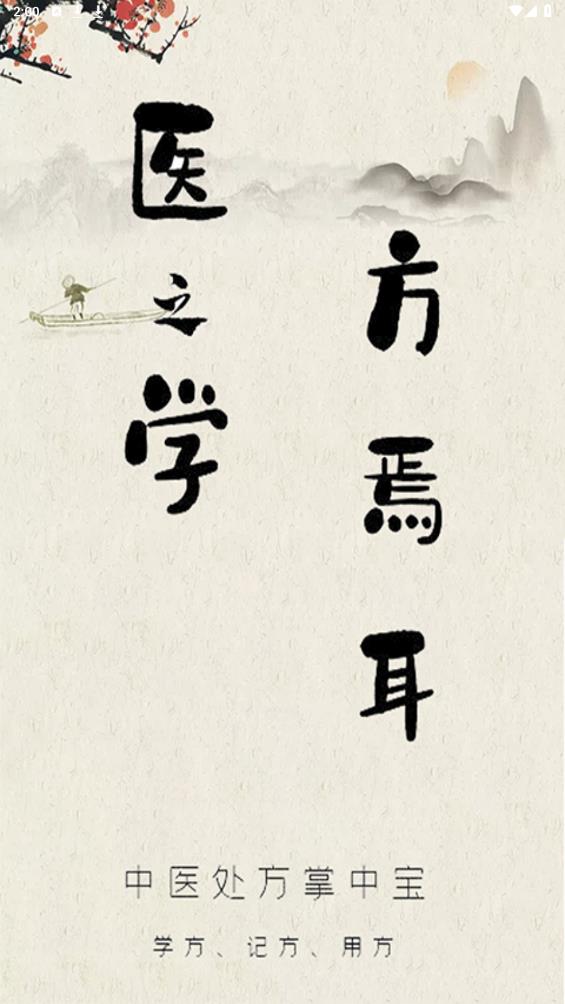 2:00
医之学
方焉耳
中医处方掌中宝
学方、记方、用方